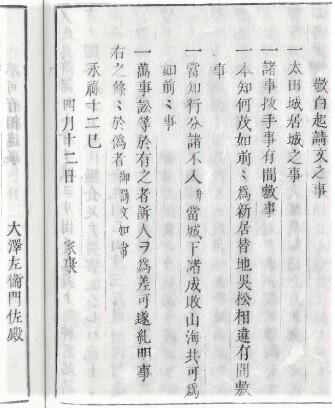 敬白起請文之事
一太田城居城之事
一諸事抜手事有間敷事
一本知何茂如前〻為新居替地呉松相違有間敷
事
一當知行分諸不入并當城下諸成敗山海共可為
如前〻事
一萬事訟等於有之者訴人ヲ為差可遂糺明事
右之條〻於偽者御罰文如常
永禄十二巳
四月十二日 家康
大澤左衞門佐殿